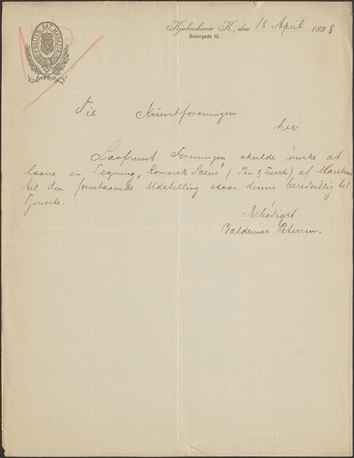 Kjøbenhavn K., den 16 April 1888
Til Kunstforeningen
her
Saafremt Foreningen skulde ønske at
laane en Tegning, komisk Scene (Tin & Tværd) af Marstrand
til den forestaaende Udstilling staar denne beredvillig til
Tjeneste.
Ærbødigst
Valdemar Petersen.